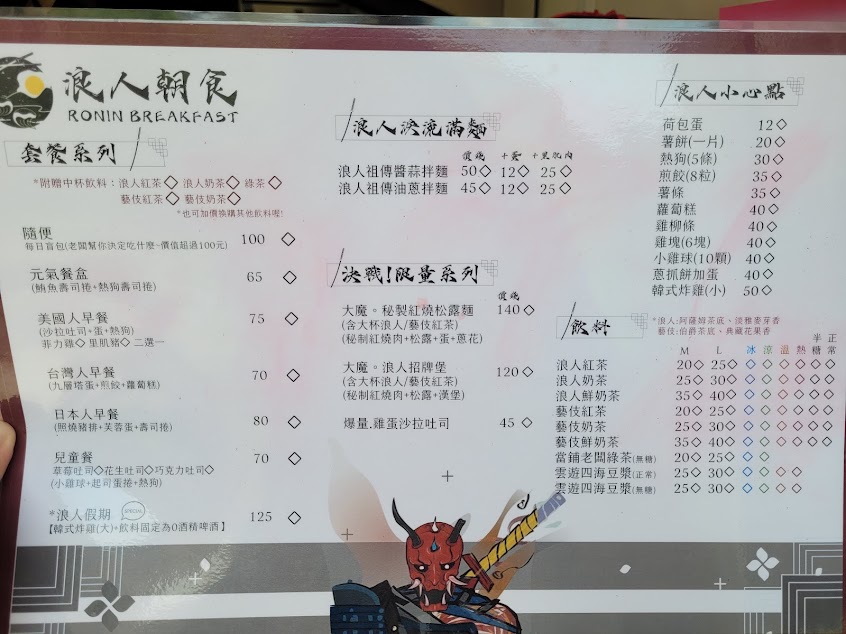 浪人朝食
RONIN BREAKFAST
套餐系列
*附贈中杯飲料：浪人紅茶◇ 浪人奶茶◇ 綠茶◇
藝伎紅茶◇ 藝伎奶茶◇
*也可加價換購其他飲料喔!
隨便 100 ◇
每日盲包(老闆幫你決定吃什麼~價值超過100元)
元氣餐盒 65 ◇
(鮪魚壽司捲+熱狗壽司捲)
美國人早餐 75 ◇
(沙拉吐司+蛋+熱狗)
菲力雞◇ 里肌豬◇ 二選一
台灣人早餐 70 ◇
(九層塔蛋+煎餃+蘿蔔糕)
日本人早餐 80 ◇
(照燒豬排+芙蓉蛋+壽司捲)
兒童餐 70 ◇
草莓吐司◇花生吐司◇巧克力吐司◇
(小雞球+起司蛋捲+熱狗)
*浪人假期 SPECIAL 125 ◇
【韓式炸雞(大)+飲料固定為0酒精啤酒】
浪人決流滿麵
價錢 +蛋 +里肌肉
浪人祖傳醬蒜拌麵 50◇ 12◇ 25◇
浪人祖傳油蔥拌麵 45◇ 12◇ 25◇
決戰!限量系列
價錢
大魔。秘製紅燒松露麵 140◇
(含大杯浪人/藝伎紅茶)
(秘制紅燒肉+松露+蛋+蔥花)
大魔。浪人招牌堡 120◇
(含大杯浪人/藝伎紅茶)
(秘制紅燒肉+松露+漢堡)
爆量.雞蛋沙拉吐司 45 ◇
浪人小心點
荷包蛋 12◇
薯餅(一片) 20◇
熱狗(5條) 30◇
煎餃(8粒) 35◇
薯條 35◇
蘿蔔糕 40◇
雞柳條 40◇
雞塊(6塊) 40◇
小雞球(10顆) 40◇
蔥抓餅加蛋 40◇
韓式炸雞(小) 50◇
飲料
*浪人:阿薩姆茶底、淡雅麥芽香
藝伎:伯爵茶底、典藏花果香
M L 冰 涼 溫 熱 半糖 正常
浪人紅茶 20◇ 25◇ ◇ ◇ ◇ ◇ ◇ ◇
浪人奶茶 25◇ 30◇ ◇ ◇ ◇ ◇ ◇ ◇
浪人鮮奶茶 35◇ 40◇ ◇ ◇ ◇ ◇ ◇ ◇
藝伎紅茶 20◇ 25◇ ◇ ◇ ◇ ◇ ◇ ◇
藝伎奶茶 25◇ 30◇ ◇ ◇ ◇ ◇ ◇ ◇
藝伎鮮奶茶 35◇ 40◇ ◇ ◇ ◇ ◇ ◇ ◇
當鋪老闆綠茶(無糖) 20◇ 25◇ ◇ ◇
雲遊四海豆漿(正常) 25◇ 30◇ ◇ ◇ ◇ ◇
雲遊四海豆漿(無糖) 25◇ 30◇ ◇ ◇ ◇ ◇